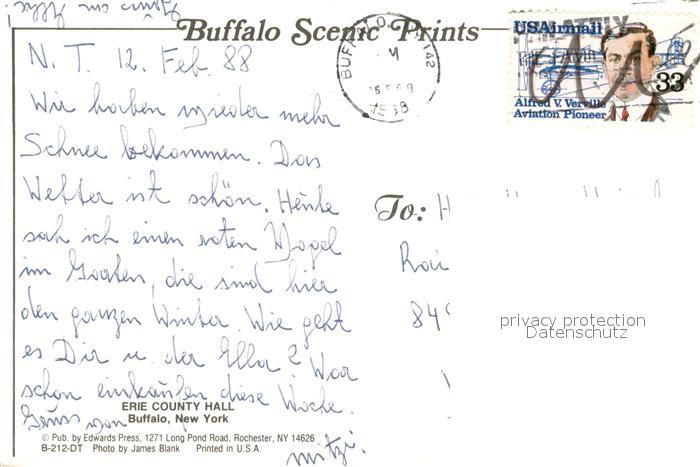 Buffalo Scenic Prints
N. T. 12. Feb. 88
Wir haben wieder mehr
Schnee bekommen. Das
Wetter ist schön. Heute
sah ich einen roten Vogel
im Garten, die sind hier
den ganzen Winter. Wie geht
es Dir u. der Ella? War
schon einkaufen diese Woche.
Gruss von
mitzi.
ERIE COUNTY HALL
Buffalo, New York
© Pub. by Edwards Press, 1271 Long Pond Road, Rochester, NY 14626
B-212-DT Photo by James Blank Printed in U.S.A.
BUFFALO
142
1988
USAirmail
33
Alfred V. Verville
Aviation Pioneer
To: H
849
privacy protection
Datenschutz